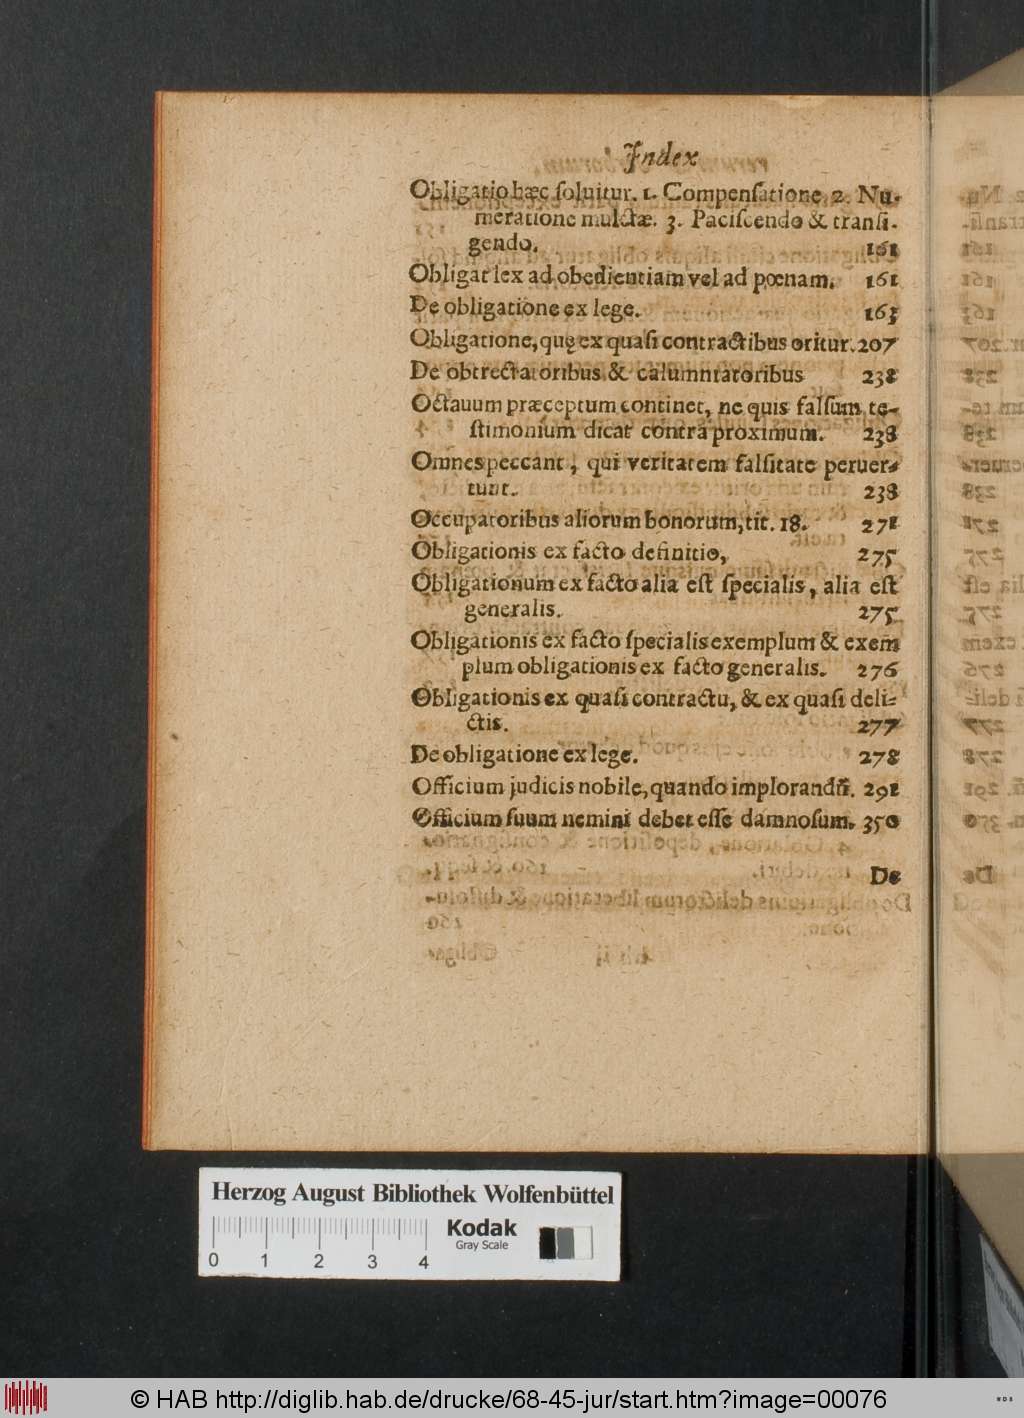 Index
Obligatio hæc soluitur. 1. Compensatione. 2. Nu-
meratione mulctæ. 3. Paciscendo & transi-
gendo. 161
Obligat lex ad obedientiam vel ad pœnam. 161
De obligatione ex lege. 163
Obligatione, quę ex quasi contractibus oritur. 207
De obtrectatoribus & calumniatoribus 238
Octauum præceptum continet, ne quis falsum te-
stimonium dicat contra proximum. 238
Omnes peccant, qui veritatem falsitate peruer-
tunt. 238
Occupatoribus aliorum bonorum, tit. 18. 271
Obligationis ex facto definitio, 275
Obligationum ex facto alia est specialis, alia est
generalis. 275
Obligationis ex facto specialis exemplum & exem
plum obligationis ex facto generalis. 276
Obligationis ex quasi contractu, & ex quasi deli-
ctis. 277
De obligatione ex lege. 278
Officium judicis nobile, quando implorandū. 291
Officium suum nemini debet esse damnosum. 350
De
Herzog August Bibliothek Wolfenbüttel
Kodak
Gray Scale
0 1 2 3 4
© HAB http://diglib.hab.de/drucke/68-45-jur/start.htm?image=00076